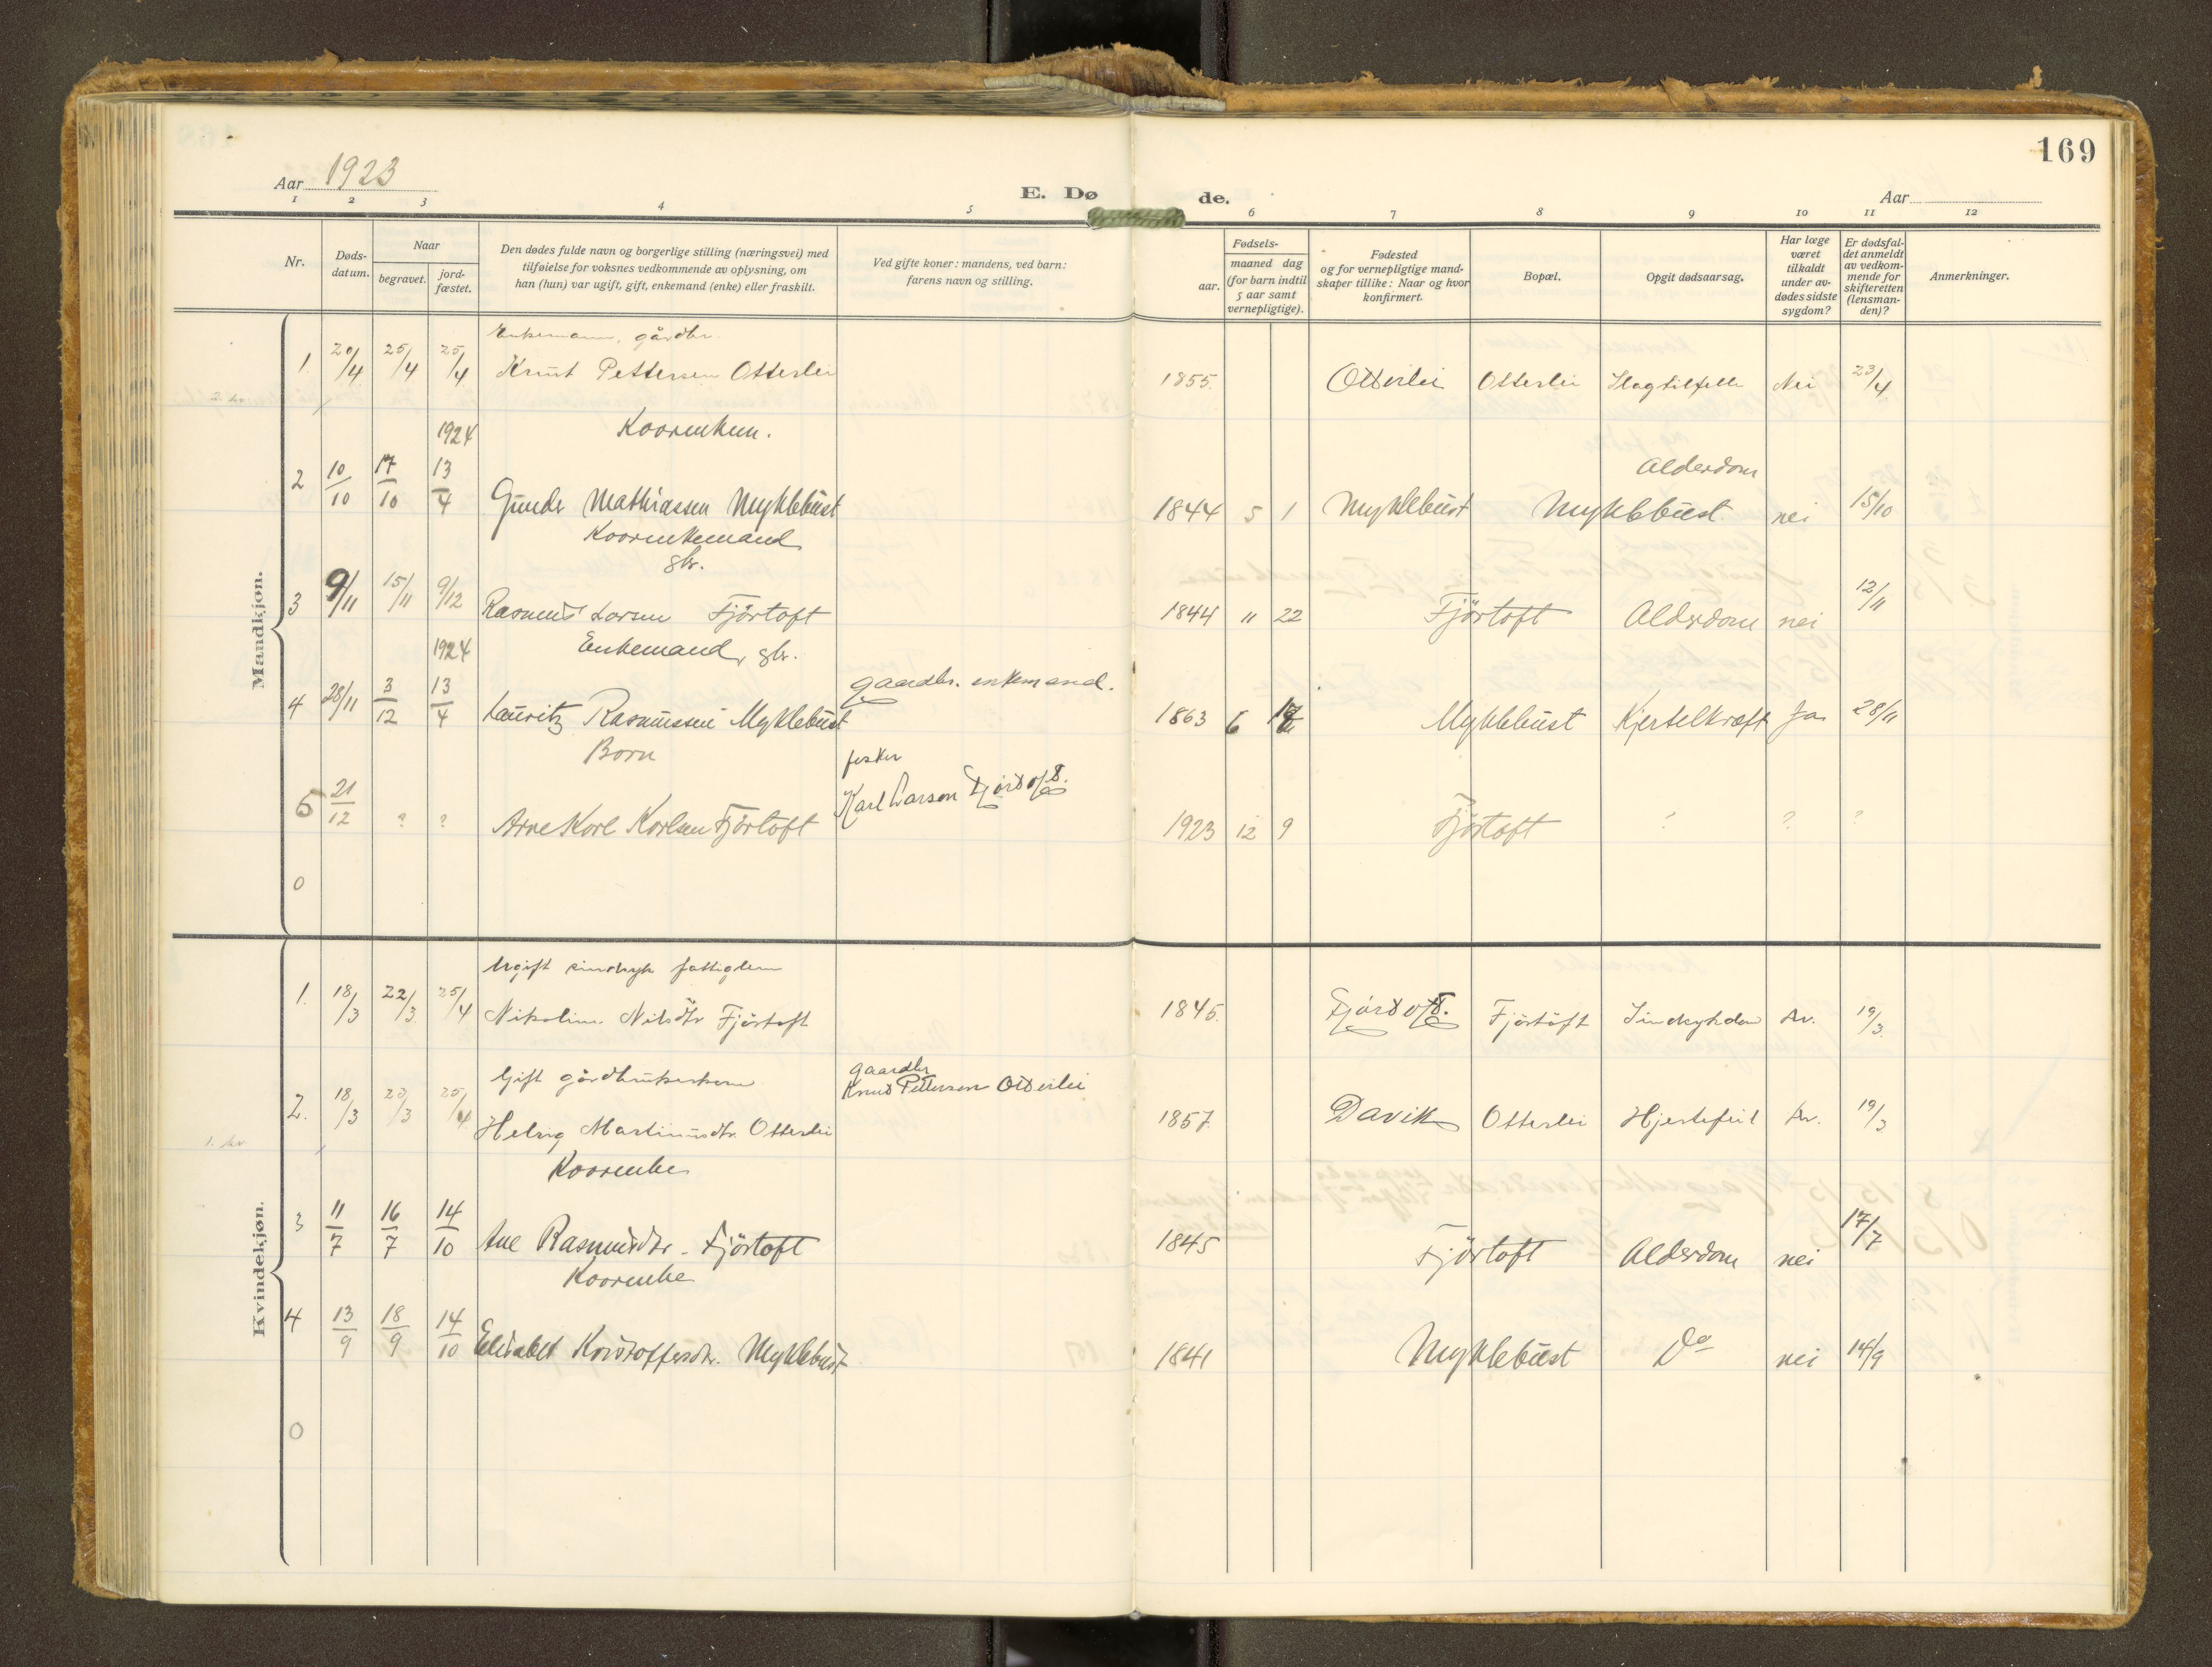 169
Aar 1923
E. Dø de.
Aar
1 2 3 4 5 6 7 8 9 10 11 12
Nr.
Døds-datum.
Naar
begravet.
jord-fæstet.
Den dødes fulde navn og borgerlige stilling (næringsvei) med
tilføielse for voksnes vedkommende av oplysning, om
han (hun) var ugift, gift, enkemand (enke) eller fraskilt.
Ved gifte koner: mandens, ved barn:
farens navn og stilling.
Fødsels-
aar.
maaned dag
(for barn indtil
5 aar samt
vernepligtige).
Fødested
og for vernepligtige mand-
skaper tillike: Naar og hvor
konfirmert.
Bopæl.
Opgit dødsaarsag.
Har læge
været
tilkaldt
under av-
dødes sidste
sygdom?
Er dødsfal-
det anmeldt
av vedkom-
mende for
skifteretten
(lensman-
den)?
Anmerkninger.
Mandkjøn.
Enkemann, gårdbr.
1. 20/4 25/4 25/4 Knut Pettersen Otterlei 1855. Otterlei Otterlei Slagtilfelle Nei 23/4
1924 Kaarenkem.
Alderdom
2 10/10 17/10 13/4 Gunder Mathiassen Myklebust 1844 5 1 Myklebust Myklebust nei 15/10
Kaarenkemand
gbr.
3 9/11 15/11 9/12 Rasmus Larsen Fjörtoft 1844 11 22 Fjörtoft Alderdom nei 12/11
1924 Enkemand, gbr.
gaardbr. enkemand.
4 28/11 3/12 13/4 Lauritz Rasmussen Myklebust 1863 6 Myklebust Kjertelkræft Ja 28/11
Barn
fisker
Karl Larsen Fjørtoft.
5 21/12 ? ? Arne Karl Karlsen Fjörtoft 1923 12 9 Fjörtoft ? ? ?
0
Kvindekjøn.
Ugift sindsyk fattiglem
1. 18/3 22/3 25/4 Nikoline Nilsdtr Fjörtoft 1845. Fjørtoft. Fjörtoft Sindsykdom 19/3
Gift gårdbrukerkone
gaardbr
Knud Pettersen Otterlei
2. 18/3 23/3 25/4 Helvig Martinusdtr. Otterlei 1857. Davik Otterlei Hjertefeil 19/3
Kaarenke
3 11/7 16/7 14/10 Ane Rasmusdtr. Fjörtoft 1845 Fjörtoft Alderdom nei 17/7
Kaarenke
4 13/9 18/9 14/10 Elisabet Kristoffersdtr. Myklebust 1841 Myklebust Do nei 14/9
0